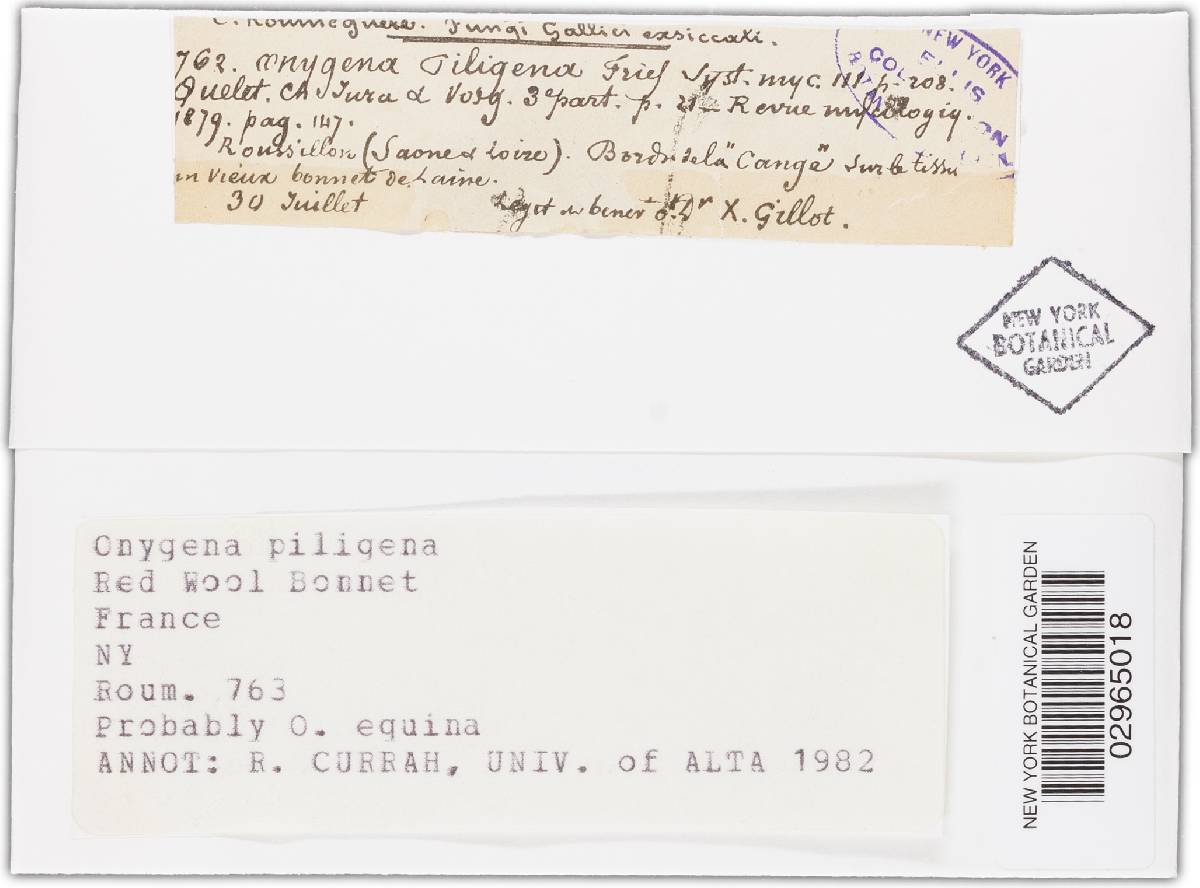 C. Roumeguère. Fungi Gallici exsiccati.
762. Onygena Piligena Fries Syst. myc. III. p. 208.
Quelet. Ch. Jura & Vosg. 3e part. p. 21 _ Revue mycologiq.
1879. pag. 147.
Roussillon (Saone & Loire). Bords de la "Cange" Sur le tissu
un vieux bonnet de Laine.
30 Juillet
Legit Dr X. Gillot.
NEW YORK
ELLIS
COLLECTION
NEW YORK
BOTANICAL
GARDEN
Onygena piligena
Red Wool Bonnet
France
NY
Roum. 763
Probably O. equina
ANNOT: R. CURRAH, UNIV. of ALTA 1982
NEW YORK BOTANICAL GARDEN
02965018